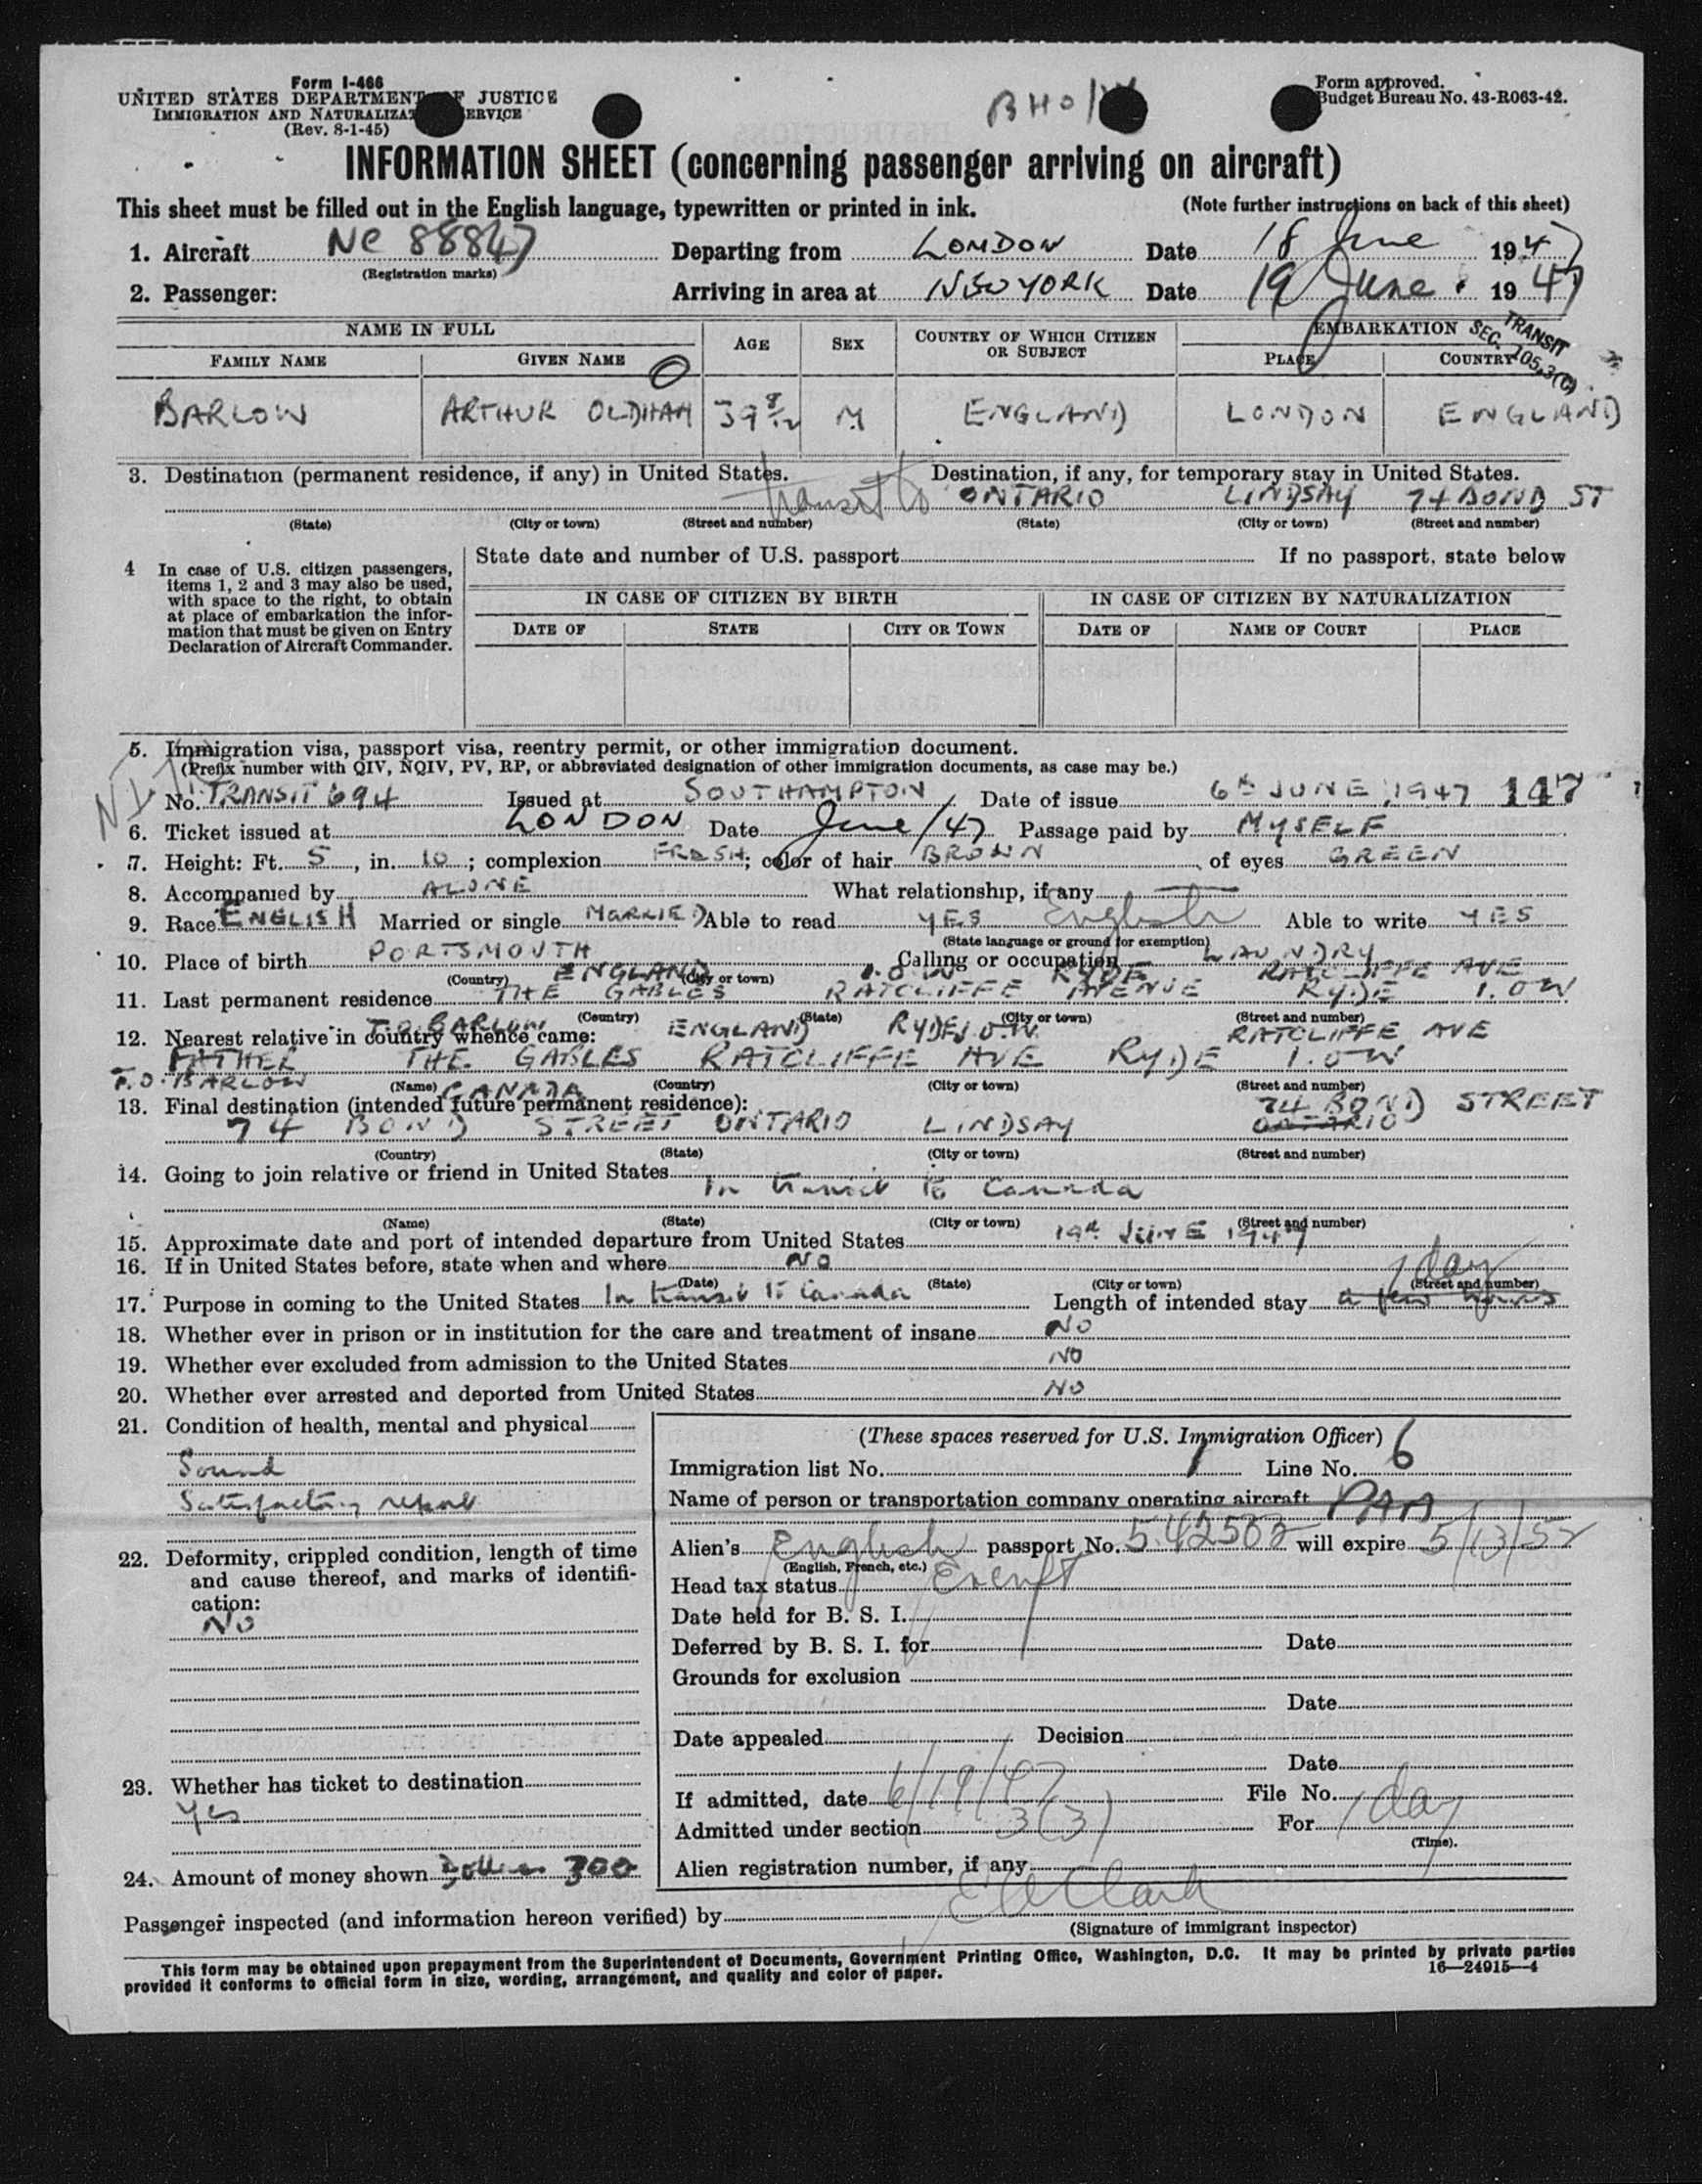 Form I-466
UNITED STATES DEPARTMENT OF JUSTICE
IMMIGRATION AND NATURALIZATION SERVICE
(Rev. 8-1-45)
Form approved.
Budget Bureau No. 43-R063-42.
INFORMATION SHEET (concerning passenger arriving on aircraft)
This sheet must be filled out in the English language, typewritten or printed in ink. (Note further instructions on back of this sheet)
1. Aircraft NC 88847 Departing from LONDON Date 18 June 1947
(Registration marks)
2. Passenger: Arriving in area at NEW YORK Date 19 June 1947
NAME IN FULL AGE SEX COUNTRY OF WHICH CITIZEN OR SUBJECT EMBARKATION
FAMILY NAME GIVEN NAME PLACE COUNTRY
TRANSIT
SEC. 105.3(C)
BARLOW ARTHUR OLDHAM 39 8/12 M ENGLAND LONDON ENGLAND
3. Destination (permanent residence, if any) in United States. Destination, if any, for temporary stay in United States.
transit to ONTARIO LINDSAY 74 BOND ST
(State) (City or town) (Street and number) (State) (City or town) (Street and number)
4 In case of U.S. citizen passengers, items 1, 2 and 3 may also be used, with space to the right, to obtain at place of embarkation the information that must be given on Entry Declaration of Aircraft Commander.
State date and number of U.S. passport If no passport, state below
IN CASE OF CITIZEN BY BIRTH IN CASE OF CITIZEN BY NATURALIZATION
DATE OF STATE CITY OR TOWN DATE OF NAME OF COURT PLACE
5. Immigration visa, passport visa, reentry permit, or other immigration document.
(Prefix number with QIV, NQIV, PV, RP, or abbreviated designation of other immigration documents, as case may be.)
No. TRANSIT 694 Issued at SOUTHAMPTON Date of issue 6th JUNE 1947 147
6. Ticket issued at LONDON Date June/47 Passage paid by MYSELF
7. Height: Ft. 5, in. 10; complexion FRESH; color of hair BROWN, of eyes GREEN
8. Accompanied by ALONE What relationship, if any
9. Race ENGLISH Married or single MARRIED Able to read YES English Able to write YES
(State language or ground for exemption)
10. Place of birth PORTSMOUTH Calling or occupation LAUNDRY
(Country) ENGLAND (City or town) I.O.W RYDE RATCLIFFE AVE
11. Last permanent residence THE GABLES RATCLIFFE AVENUE RYDE I.O.W
(Country) (State) (City or town) (Street and number)
12. Nearest relative in country whence came: T.O. BARLOW ENGLAND RYDE I.O.W. RATCLIFFE AVE
FATHER THE GABLES RATCLIFFE AVE RYDE I.O.W
T.O. BARLOW (Name) (Country) (City or town) (Street and number)
CANADA
13. Final destination (intended future permanent residence): 74 BOND STREET
74 BOND STREET ONTARIO LINDSAY ONTARIO
(Country) (State) (City or town) (Street and number)
14. Going to join relative or friend in United States
In transit to Canada
(Name) (State) (City or town) (Street and number)
15. Approximate date and port of intended departure from United States 19th JUNE 1947
16. If in United States before, state when and where NO
(Date) (State) (City or town) (Street and number)
1 day
17. Purpose in coming to the United States In transit to Canada Length of intended stay a few hours
18. Whether ever in prison or in institution for the care and treatment of insane NO
19. Whether ever excluded from admission to the United States NO
20. Whether ever arrested and deported from United States NO
21. Condition of health, mental and physical
Sound
Satisfactory
22. Deformity, crippled condition, length of time and cause thereof, and marks of identification:
NO
23. Whether has ticket to destination
Yes
24. Amount of money shown Dollars 300
(These spaces reserved for U.S. Immigration Officer)
Immigration list No. 1 Line No. 6
Name of person or transportation company operating aircraft PAA
Alien's English passport No. 542502 will expire 5/13/52
(English, French, etc.)
Head tax status Exempt
Date held for B. S. I.
Deferred by B. S. I. for Date
Grounds for exclusion
Date
Date appealed Decision
Date
If admitted, date 6/19/47 File No.
Admitted under section 3(3) For 1 day
(Time).
Alien registration number, if any
Passenger inspected (and information hereon verified) by Clark
(Signature of immigrant inspector)
This form may be obtained upon prepayment from the Superintendent of Documents, Government Printing Office, Washington, D.C. It may be printed by private parties
provided it conforms to official form in size, wording, arrangement, and quality and color of paper. 16—24915—4